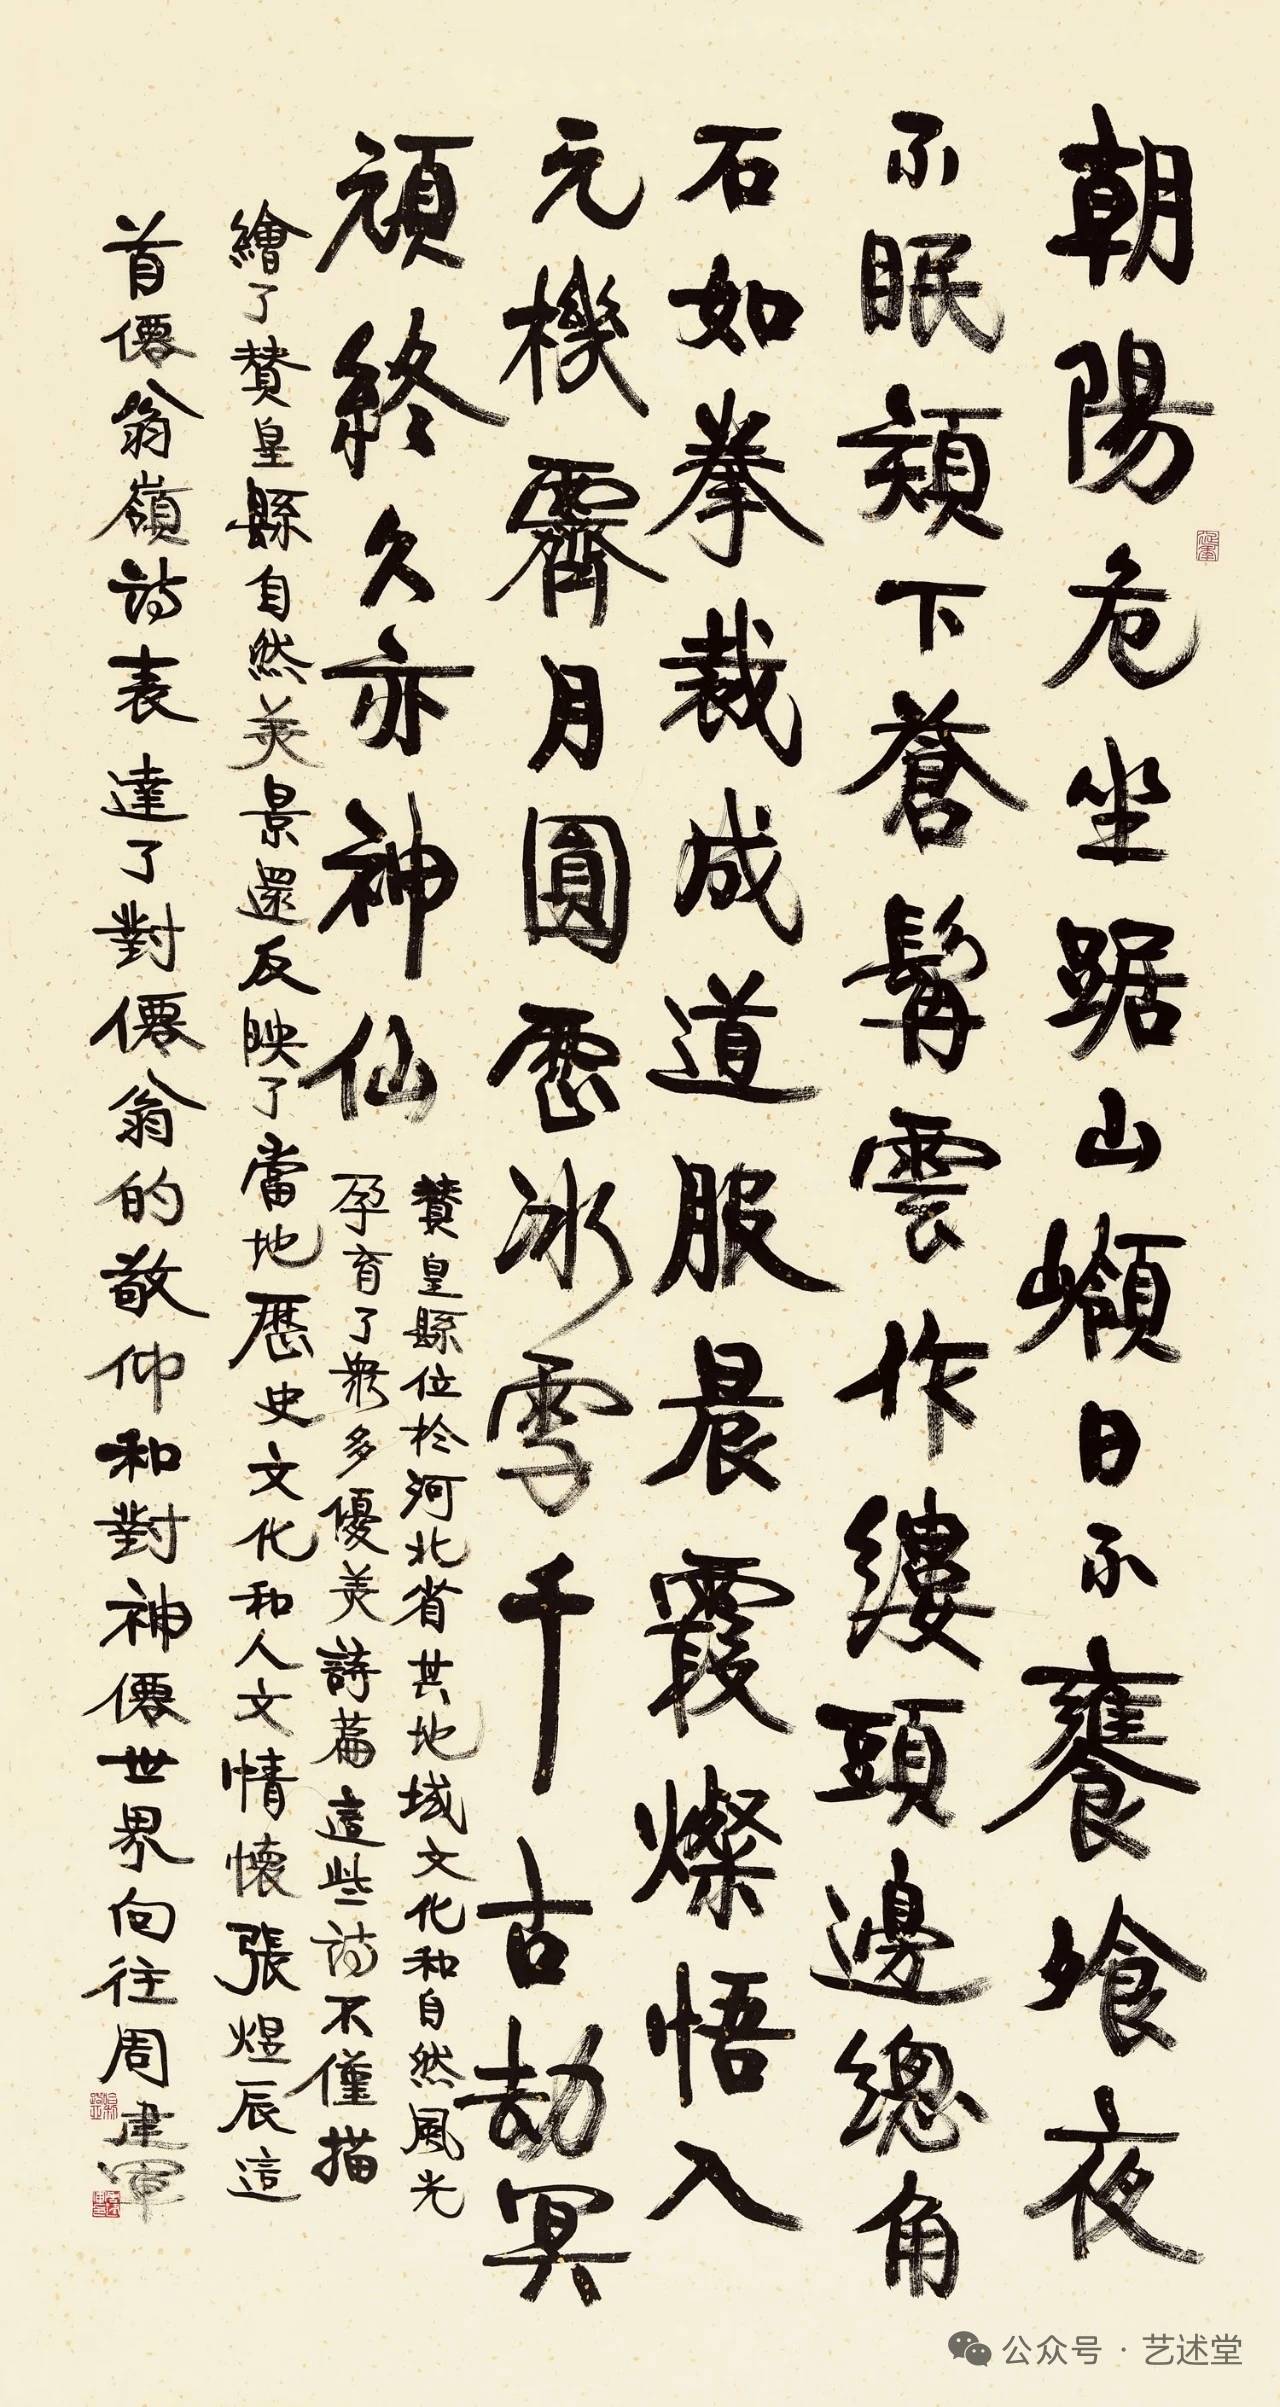 朝陽危坐踞山巔日不饔飧夜
不眠頦下蒼髯雲作縷頭邊總角
石如拳裁成道服晨霞燦悟入
元機霽月圓歷冰雪千古劫冥
頑終久亦神仙
贊皇縣位於河北省其地域文化和自然風光
孕育了眾多優美詩篇這些詩不僅描
繪了贊皇縣自然美景還反映了當地歷史文化和人文情懷張煜辰這
首僊翁嶺詩表達了對僊翁的敬仰和對神僊世界向往周建軍
公众号·艺述堂